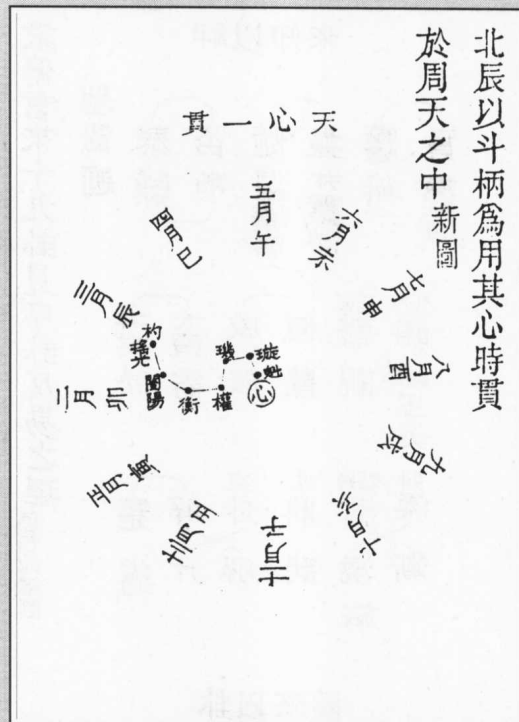 北辰以斗柄爲用其心時貫
於周天之中 新圖
天心一貫
五月午
六月未
七月申
八月酉
九月戌
十月亥
十一月子
十二月丑
正月寅
二月卯
三月辰
四月巳
杓
搖光
開陽
衡
權
璣
璇
魁
心